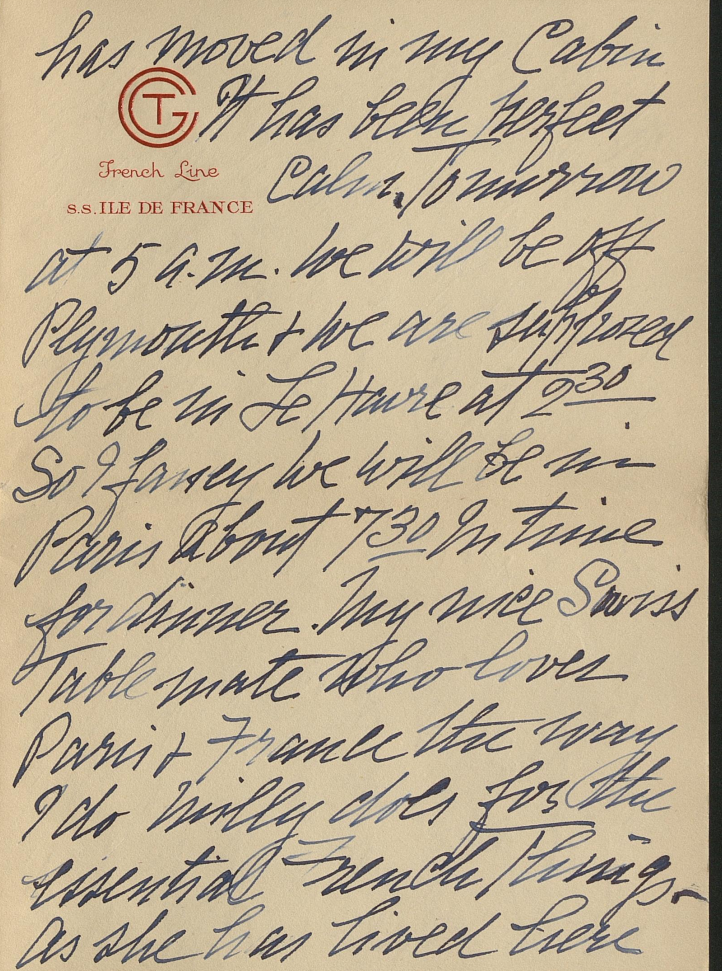 has moved in my Cabin
CGT
It has been perfect
French Line
Calm. Tomorrow
s.s. ILE DE FRANCE
at 5 a.m. we will be off
Plymouth & we are supposed
to be in Le Havre at 2 30
So I fancy we will be in
Paris about 7 30 In time
for dinner. My nice Swiss
Table mate who loves
Paris & France the way
I do Milly does for the
essential French Things -
as she has lived here